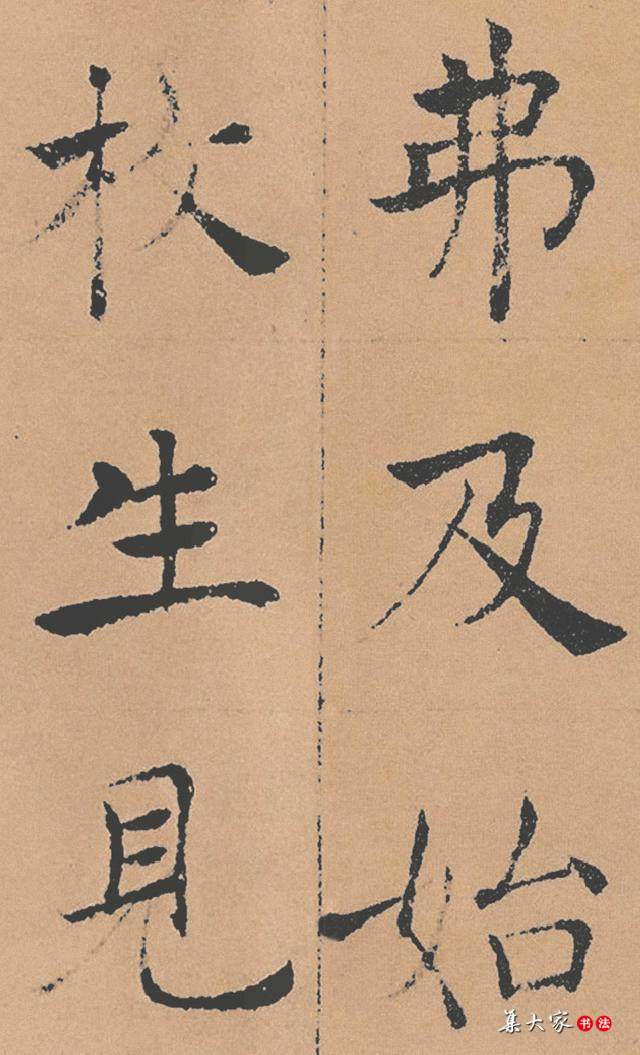 弗及始
枚生見
集大家书法